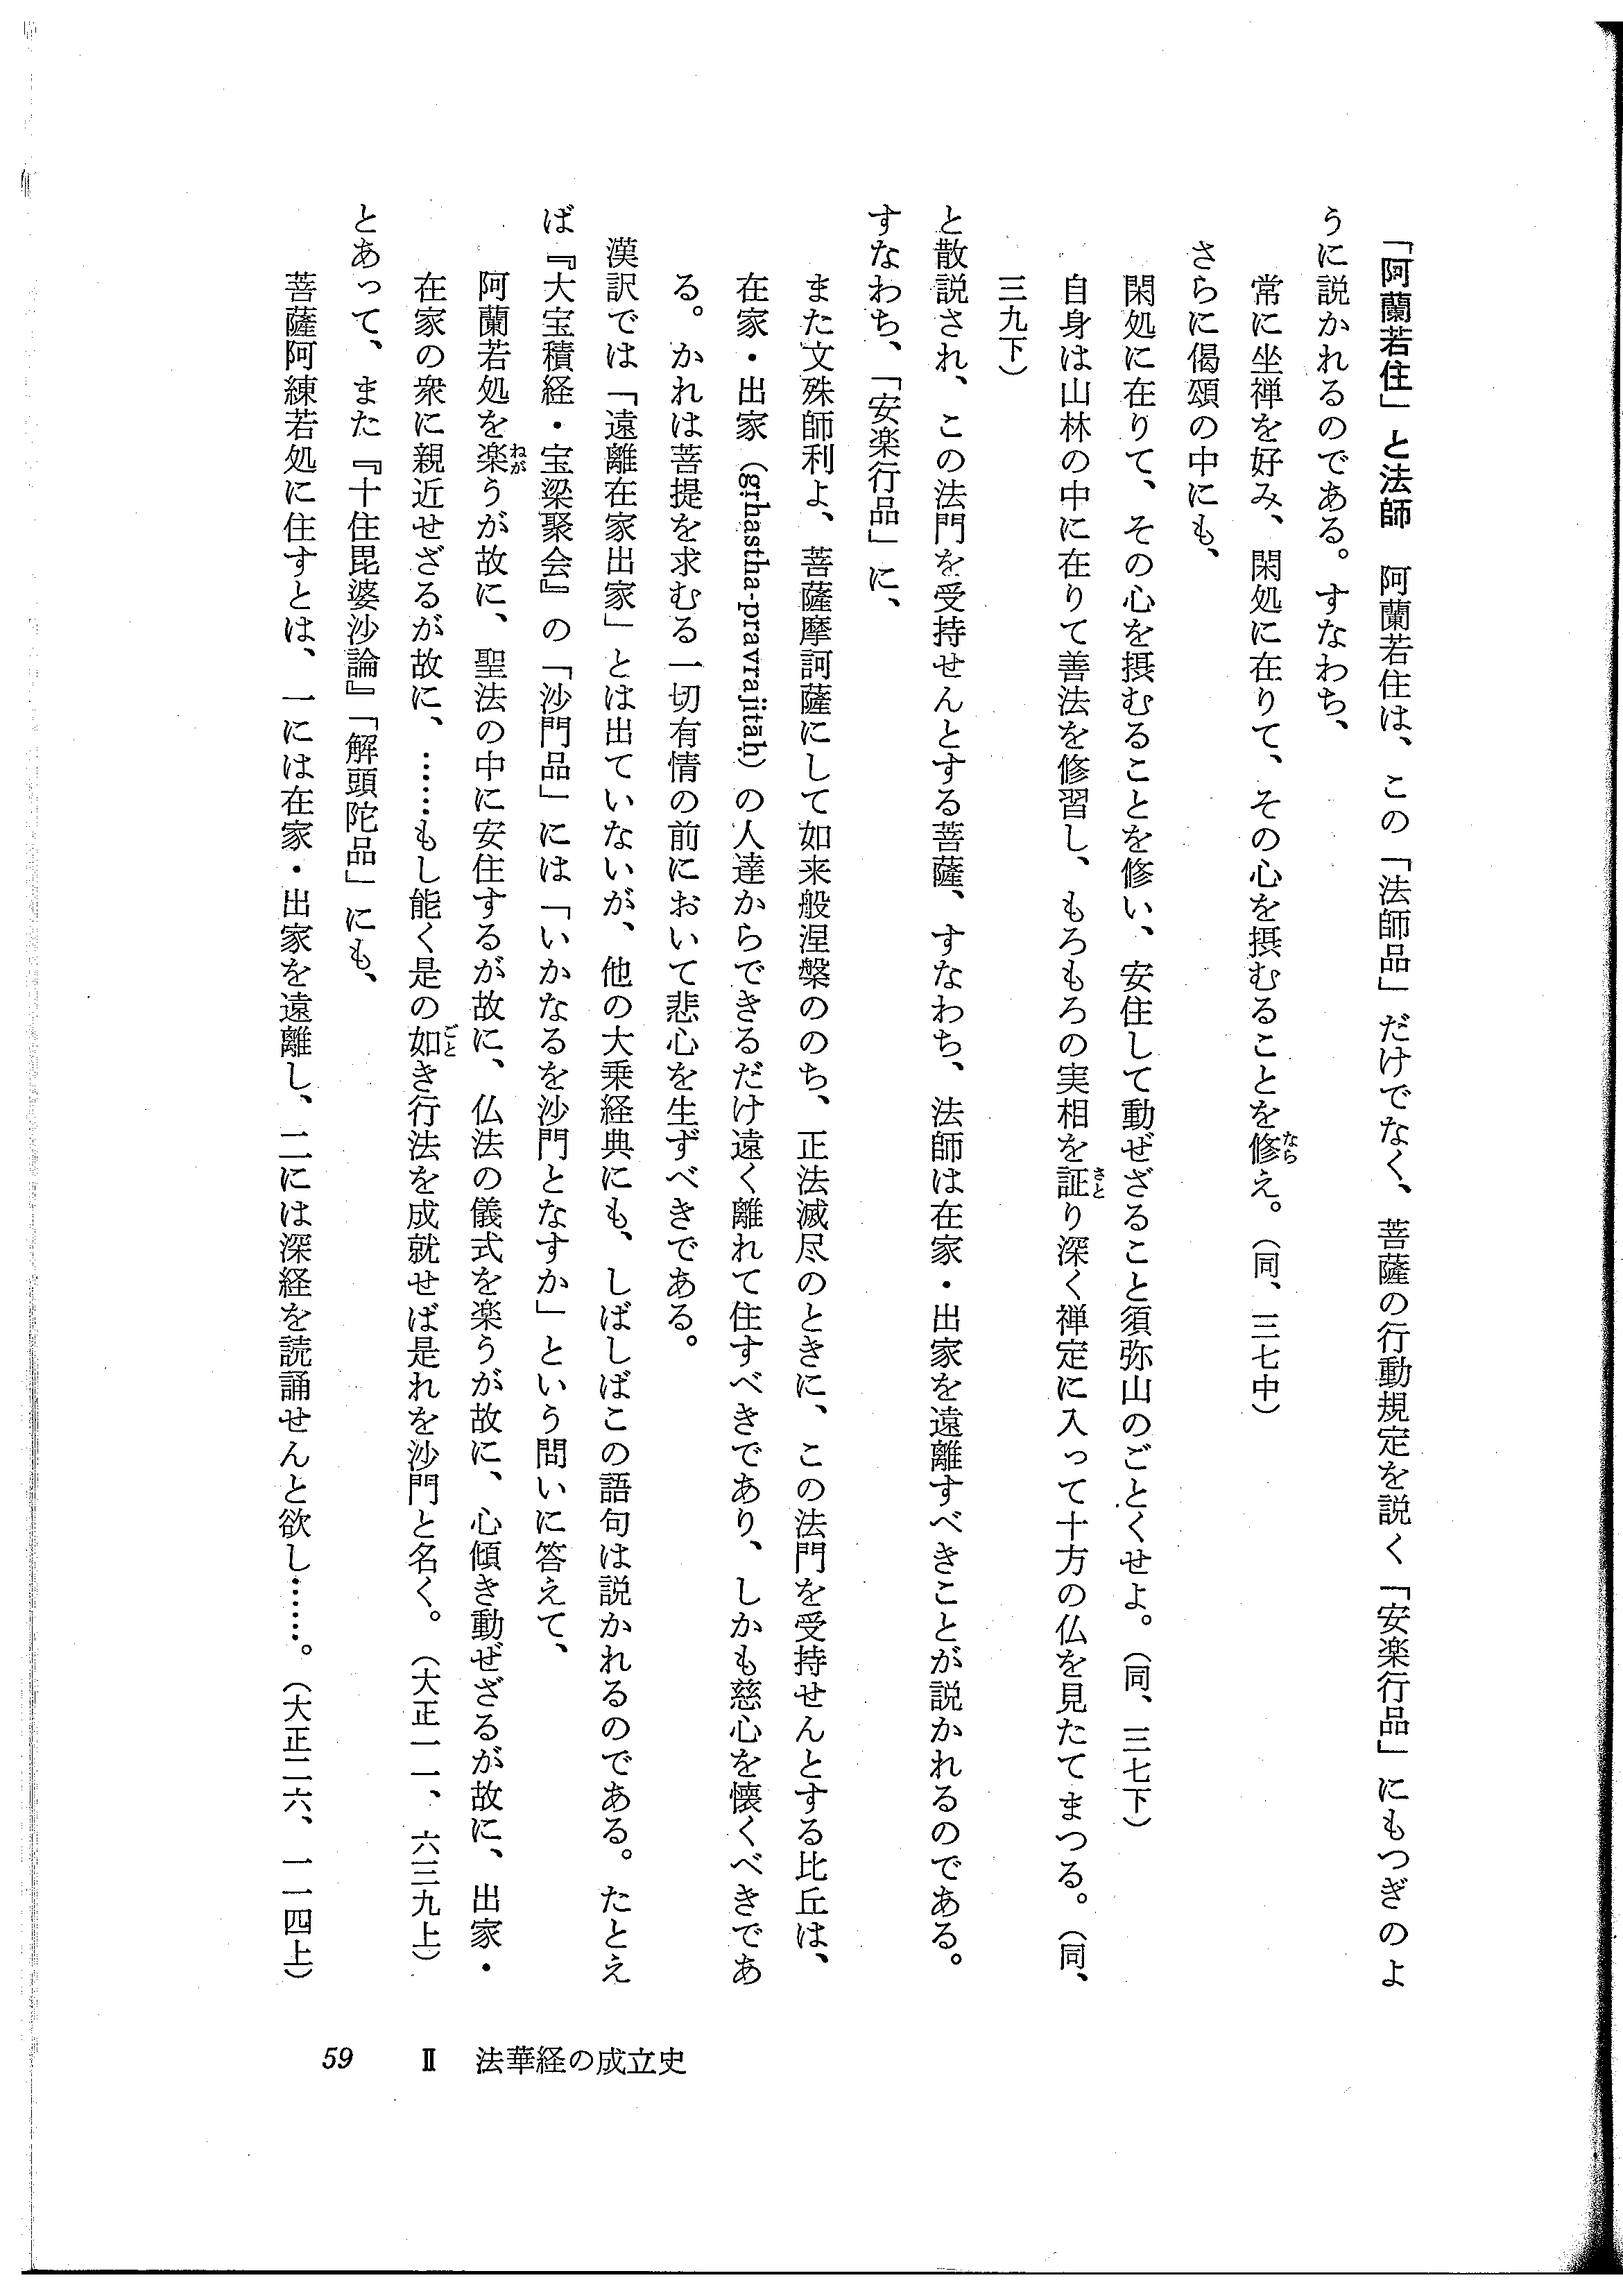 「阿蘭若住」と法師　阿蘭若住は、この「法師品」だけでなく、菩薩の行動規定を説く「安楽行品」にもつぎのよ
うに説かれるのである。すなわち、
常に坐禅を好み、閑処に在りて、その心を摂むることを修え。（同、三七中）
さらに偈頌の中にも、
閑処に在りて、その心を摂むることを修い、安住して動ぜざること須弥山のごとくせよ。（同、三七下）
自身は山林の中に在りて善法を修習し、もろもろの実相を証り深く禅定に入って十方の仏を見たてまつる。（同、
三九下）
と散説され、この法門を受持せんとする菩薩、すなわち、法師は在家・出家を遠離すべきことが説かれるのである。
すなわち、「安楽行品」に、
また文殊師利よ、菩薩摩訶薩にして如来般涅槃ののち、正法滅尽のときに、この法門を受持せんとする比丘は、
在家・出家（gṛhastha-pravrajitāḥ）の人達からできるだけ遠く離れて住すべきであり、しかも慈心を懐くべきであ
る。かれは菩提を求むる一切有情の前において悲心を生ずべきである。
漢訳では「遠離在家出家」とは出ていないが、他の大乗経典にも、しばしばこの語句は説かれるのである。たとえ
ば『大宝積経・宝梁聚会』の「沙門品」には「いかなるを沙門となすか」という問いに答えて、
阿蘭若処を楽うが故に、聖法の中に安住するが故に、仏法の儀式を楽うが故に、心傾き動ぜざるが故に、出家・
在家の衆に親近せざるが故に、……もし能く是の如き行法を成就せば是れを沙門と名く。（大正一一、六三九上）
とあって、また『十住毘婆沙論』「解頭陀品」にも、
菩薩阿練若処に住すとは、一には在家・出家を遠離し、二には深経を読誦せんと欲し……。（大正二六、一一四上）
59　Ⅱ　法華経の成立史